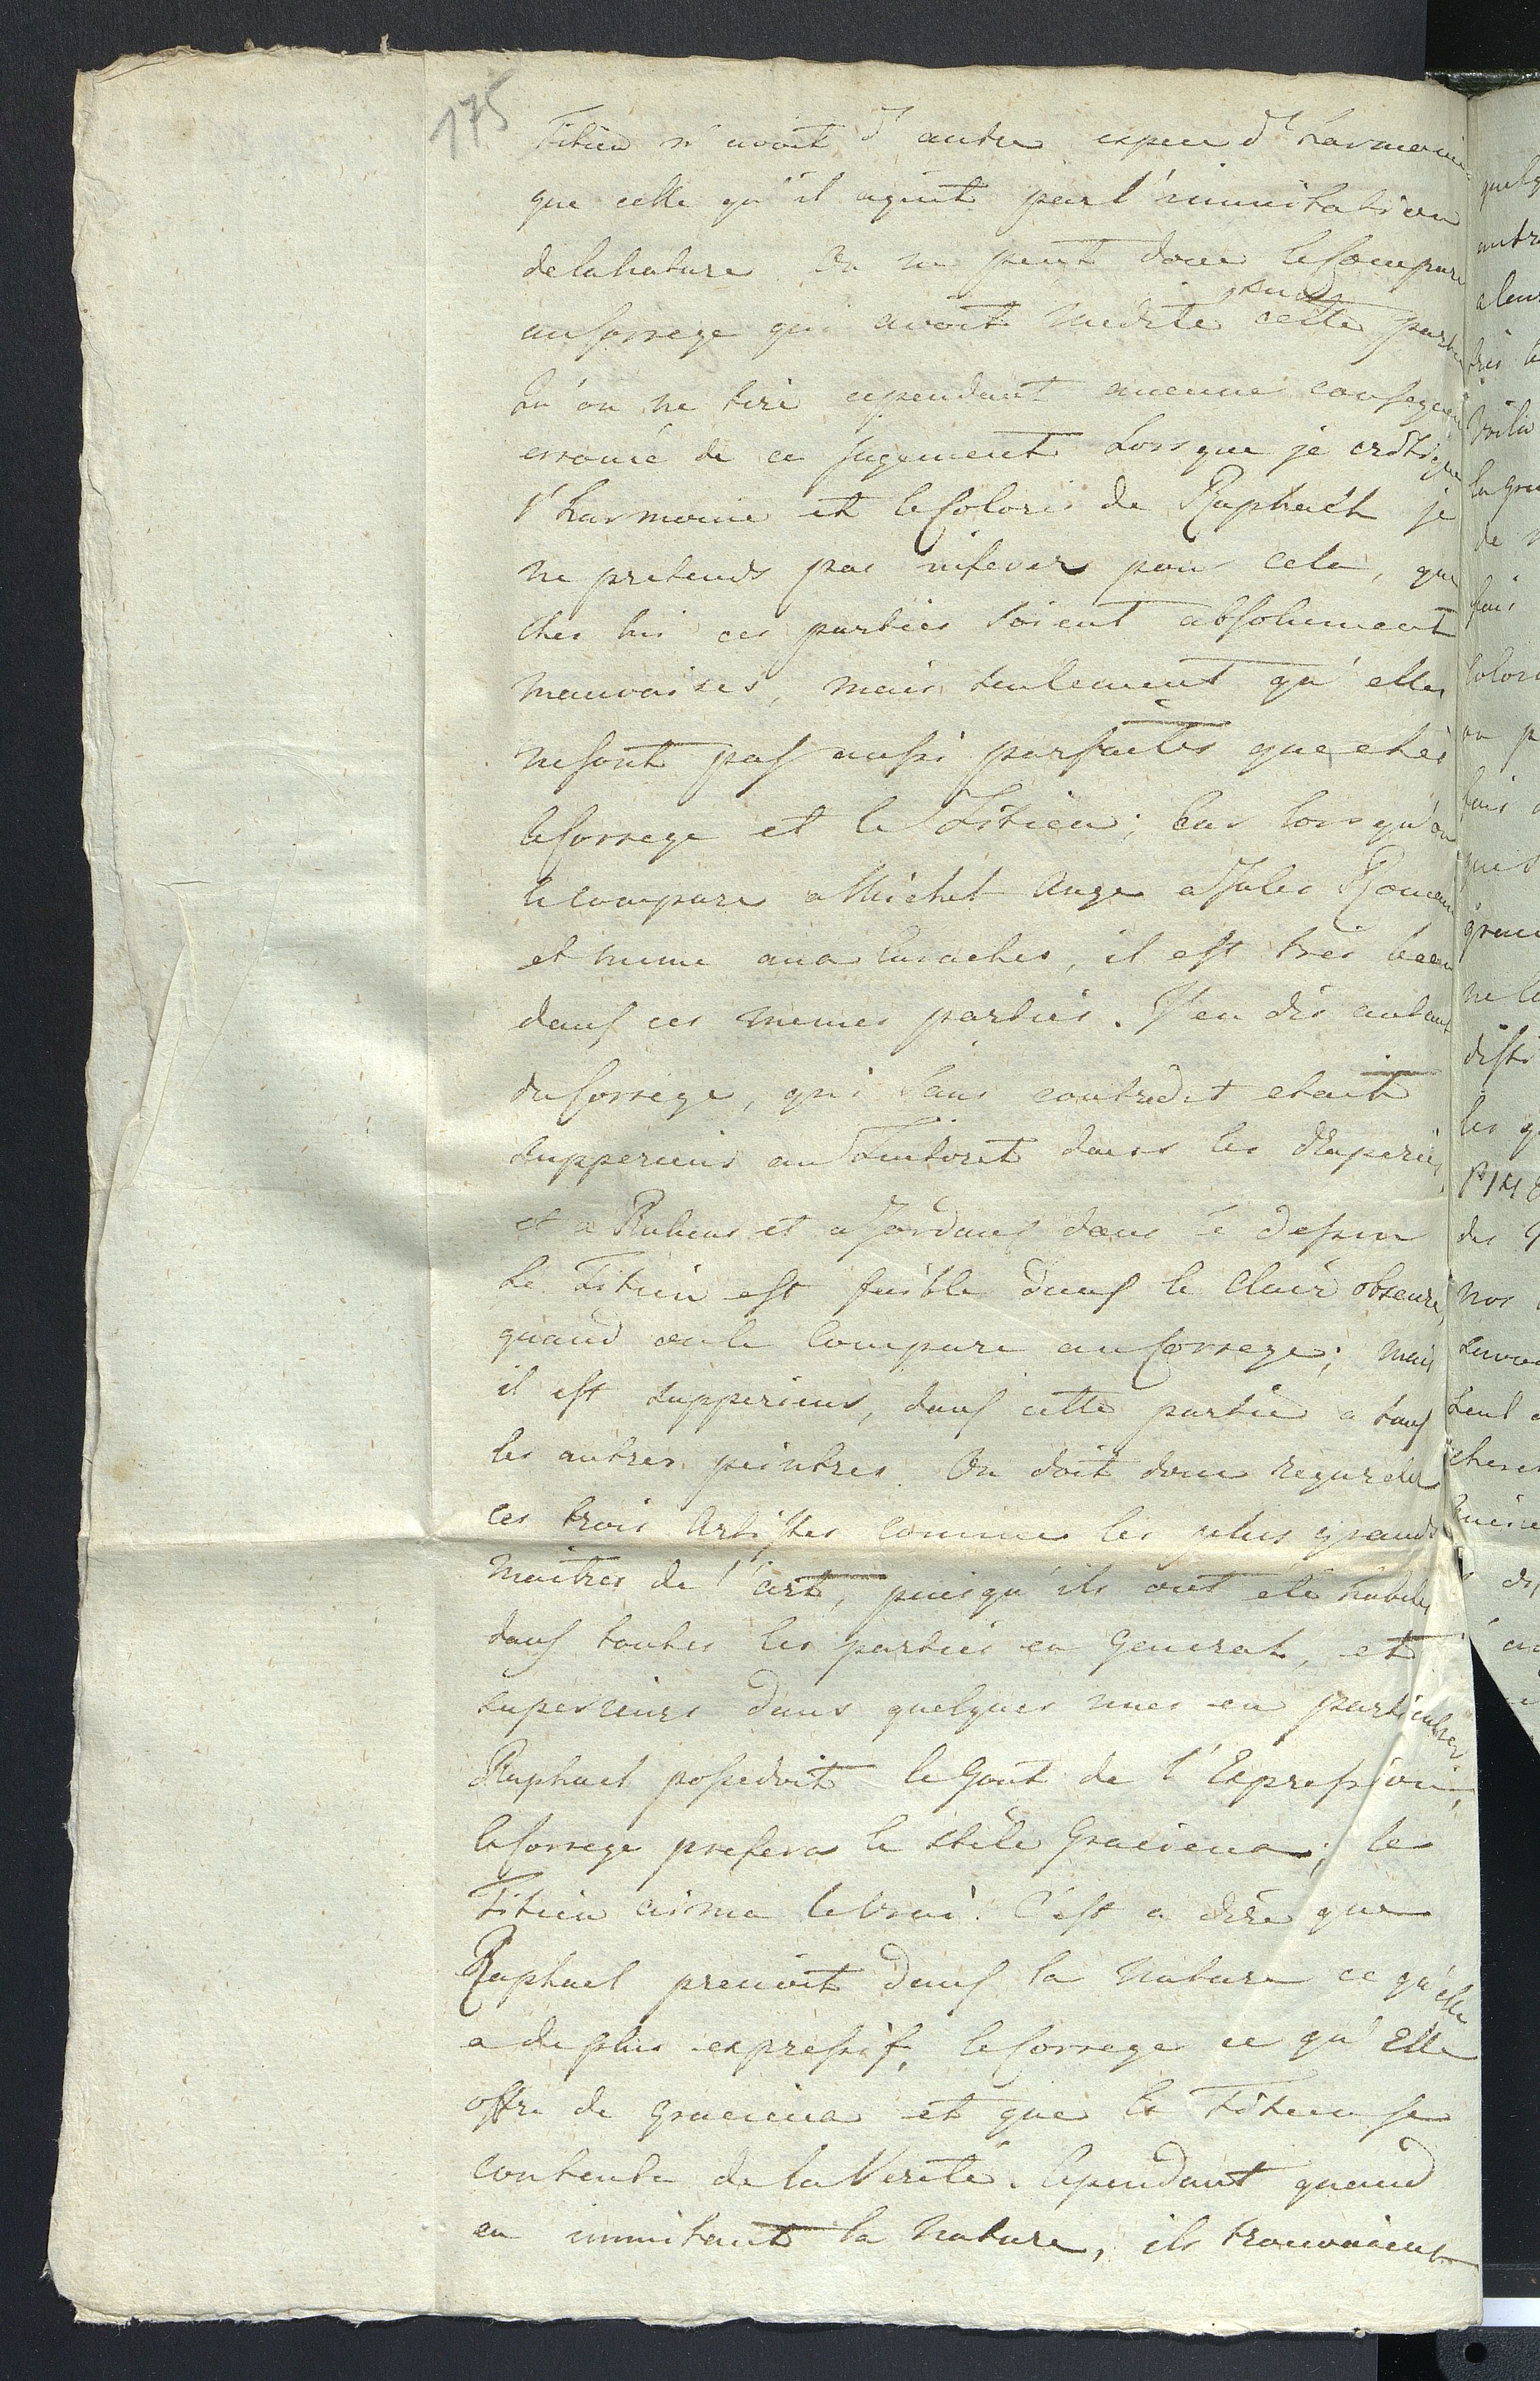 175
Titien n'avoit d'autre espece d'harmonie
que celle qu'il aquit par l'immitation
de la nature On ne peut donc le Comparer
au Correge qui avoit medité sur cette partie
Qu'on ne tire cependant aucune consequence
erronée de ce jugement Lorsque je critique
l'harmonie et le Coloris de Raphaël je
ne pretends pas inferer pour cela, que
ches lui ces parties soient absolument
mauvaises, mais seulement qu'elles
ne sont pas aussi parfaites que chés
le Correge et le Titien; Car lorsqu'on
le compare a Michel Ange a Jules Romain
et meme aux Caraches, il est tres beau
dans ces memes parties. J'en dis autant
du Correge, qui sans contredit etoit
supperieur au Tintoret dans les draperies,
et a Rubens et a Jordans dans le dessin
Le Titien est foible dans le Clair obscure,
quand on le Compare au Correge; mais
il est supperieur, dans cette partie a tous
les autres peintres. On doit donc regarder
ces trois Artistes comme les plus grands
maitres de l'art, puisqu'ils ont eté habiles
dans toutes les parties en General, et
superieurs dans quelques unes en particulier
Raphael possedoit le Gout de l'Expression,
le Correge prefera le stile Gracieux; le
Titien aima le Vrai. C'est a dire que
Raphael prenoit dans la Nature ce qu'elle
a de plus expressif, le Correge ce qu'Elle
offre de gracieux et que le Titien se
contenta de la Verité. Cependant quand
en immitant la Nature, ils trouvoient